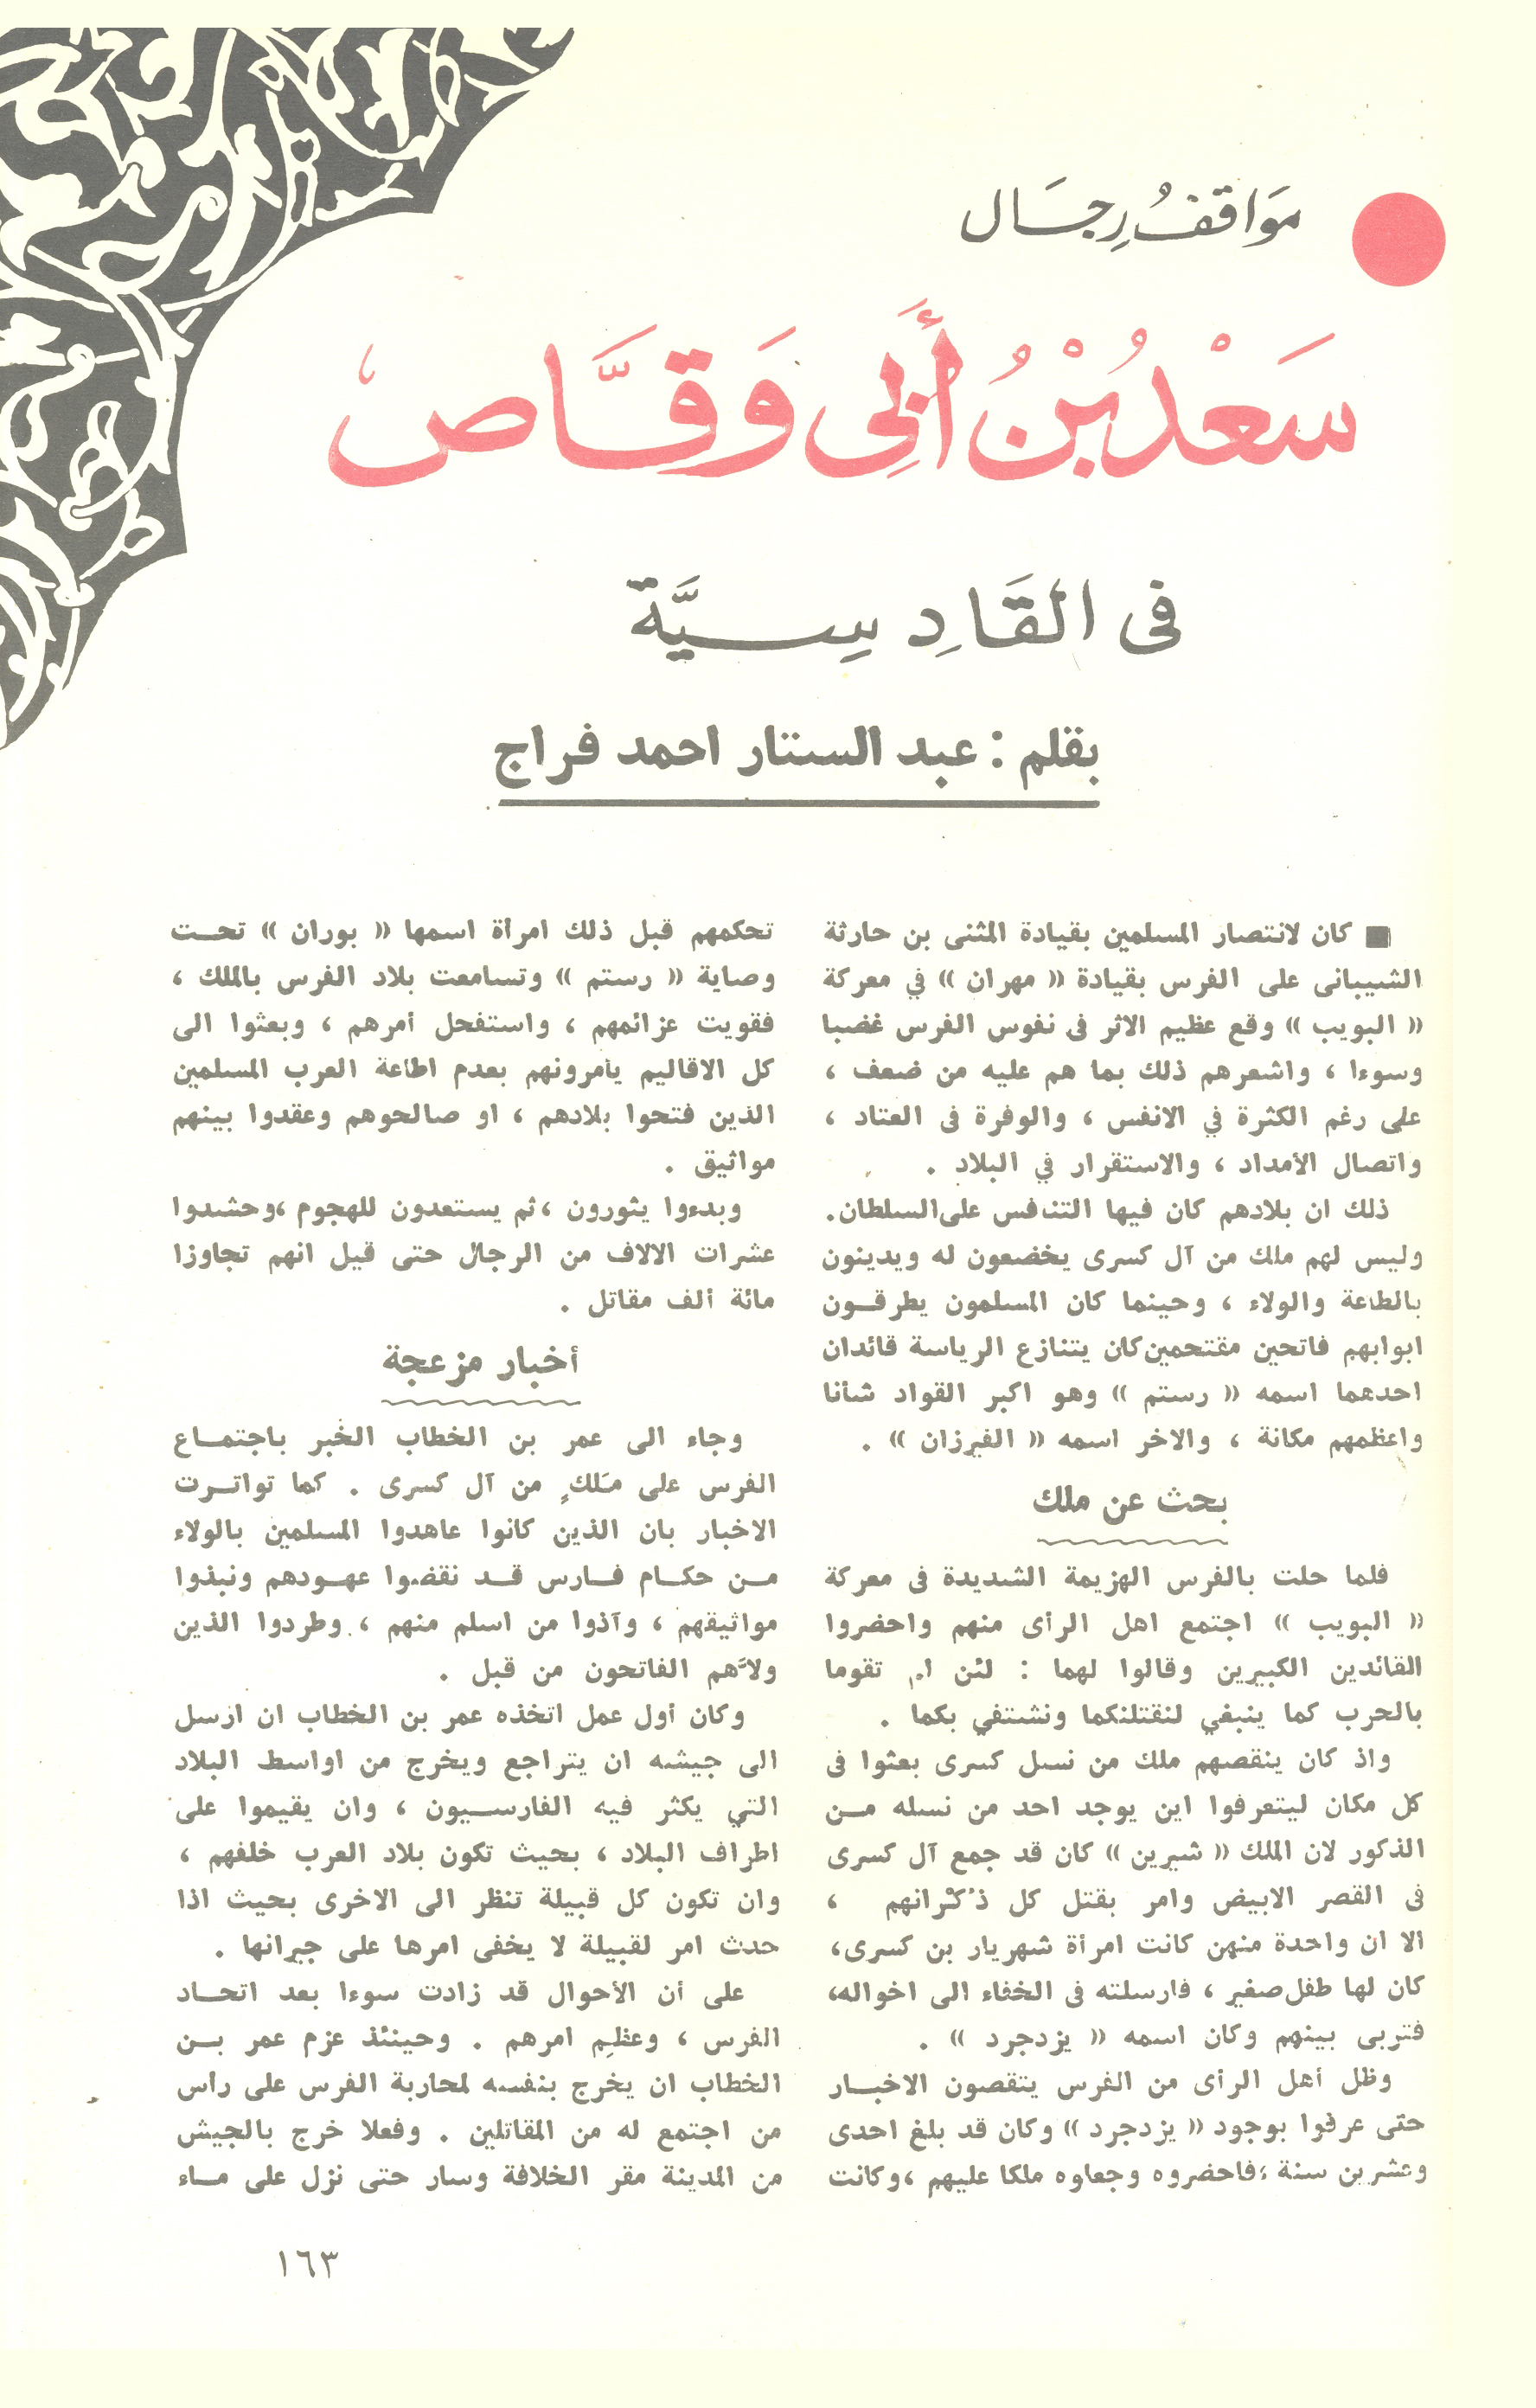 مَوَاقفُ رِجَال
سَعْدُ بْنُ أَبِى وَقَّاص
فى القَادِسِيَّة
بقلم : عبد الستار احمد فراج
■ كان لانتصار المسلمين بقيادة المثنى بن حارثة
الشيبانى على الفرس بقيادة « مهران » في معركة
« البويب » وقع عظيم الاثر فى نفوس الفرس غضبا
وسوءا ، واشعرهم ذلك بما هم عليه من ضعف ،
على رغم الكثرة في الانفس ، والوفرة فى العتاد ،
واتصال الأمداد ، والاستقرار في البلاد .
ذلك ان بلادهم كان فيها التنافس على السلطان.
وليس لهم ملك من آل كسرى يخضعون له ويدينون
بالطاعة والولاء ، وحينما كان المسلمون يطرقون
ابوابهم فاتحين مقتحمين كان يتنازع الرياسة قائدان
احدهما اسمه « رستم » وهو اكبر القواد شأنا
واعظمهم مكانة ، والاخر اسمه « الفيرزان » .
بحث عن ملك
فلما حلت بالفرس الهزيمة الشديدة فى معركة
« البويب » اجتمع اهل الرأى منهم واحضروا
القائدين الكبيرين وقالوا لهما : لئن لم تقوما
بالحرب كما ينبغي لنقتلنكما ونشتفي بكما .
واذ كان ينقصهم ملك من نسل كسرى بعثوا فى
كل مكان ليتعرفوا اين يوجد احد من نسله من
الذكور لان الملك « شيرين » كان قد جمع آل كسرى
فى القصر الابيض وامر بقتل كل ذُكْرانهم ،
الا ان واحدة منهن كانت امرأة شهريار بن كسرى،
كان لها طفل صغير ، فارسلته فى الخفاء الى اخواله،
فتربى بينهم وكان اسمه « يزدجرد » .
وظل أهل الرأى من الفرس يتقصون الاخبار
حتى عرفوا بوجود « يزدجرد » وكان قد بلغ احدى
وعشرين سنة ،فاحضروه وجعلوه ملكا عليهم ،وكانت
تحكمهم قبل ذلك امرأة اسمها « بوران » تحت
وصاية « رستم » وتسامعت بلاد الفرس بالملك ،
فقويت عزائمهم ، واستفحل أمرهم ، وبعثوا الى
كل الاقاليم يأمرونهم بعدم اطاعة العرب المسلمين
الذين فتحوا بلادهم ، او صالحوهم وعقدوا بينهم
مواثيق .
وبدءوا يثورون ،ثم يستعدون للهجوم ،وحشدوا
عشرات الالاف من الرجال حتى قيل انهم تجاوزا
مائة ألف مقاتل .
أخبار مزعجة
وجاء الى عمر بن الخطاب الخبر باجتماع
الفرس على مَلكٍ من آل كسرى . كما تواترت
الاخبار بان الذين كانوا عاهدوا المسلمين بالولاء
من حكام فارس قد نقضوا عهودهم ونبذوا
مواثيقهم ، وآذوا من اسلم منهم ، وطردوا الذين
ولاَّهم الفاتحون من قبل .
وكان أول عمل اتخذه عمر بن الخطاب ان ارسل
الى جيشه ان يتراجع ويخرج من اواسط البلاد
التي يكثر فيه الفارسيون ، وان يقيموا على
اطراف البلاد ، بحيث تكون بلاد العرب خلفهم ،
وان تكون كل قبيلة تنظر الى الاخرى بحيث اذا
حدث امر لقبيلة لا يخفى امرها على جيرانها .
على أن الأحوال قد زادت سوءا بعد اتحاد
الفرس ، وعظِم امرهم . وحينئذ عزم عمر بن
الخطاب ان يخرج بنفسه لمحاربة الفرس على رأس
من اجتمع له من المقاتلين . وفعلا خرج بالجيش
من المدينة مقر الخلافة وسار حتى نزل على ماء
١٦٣